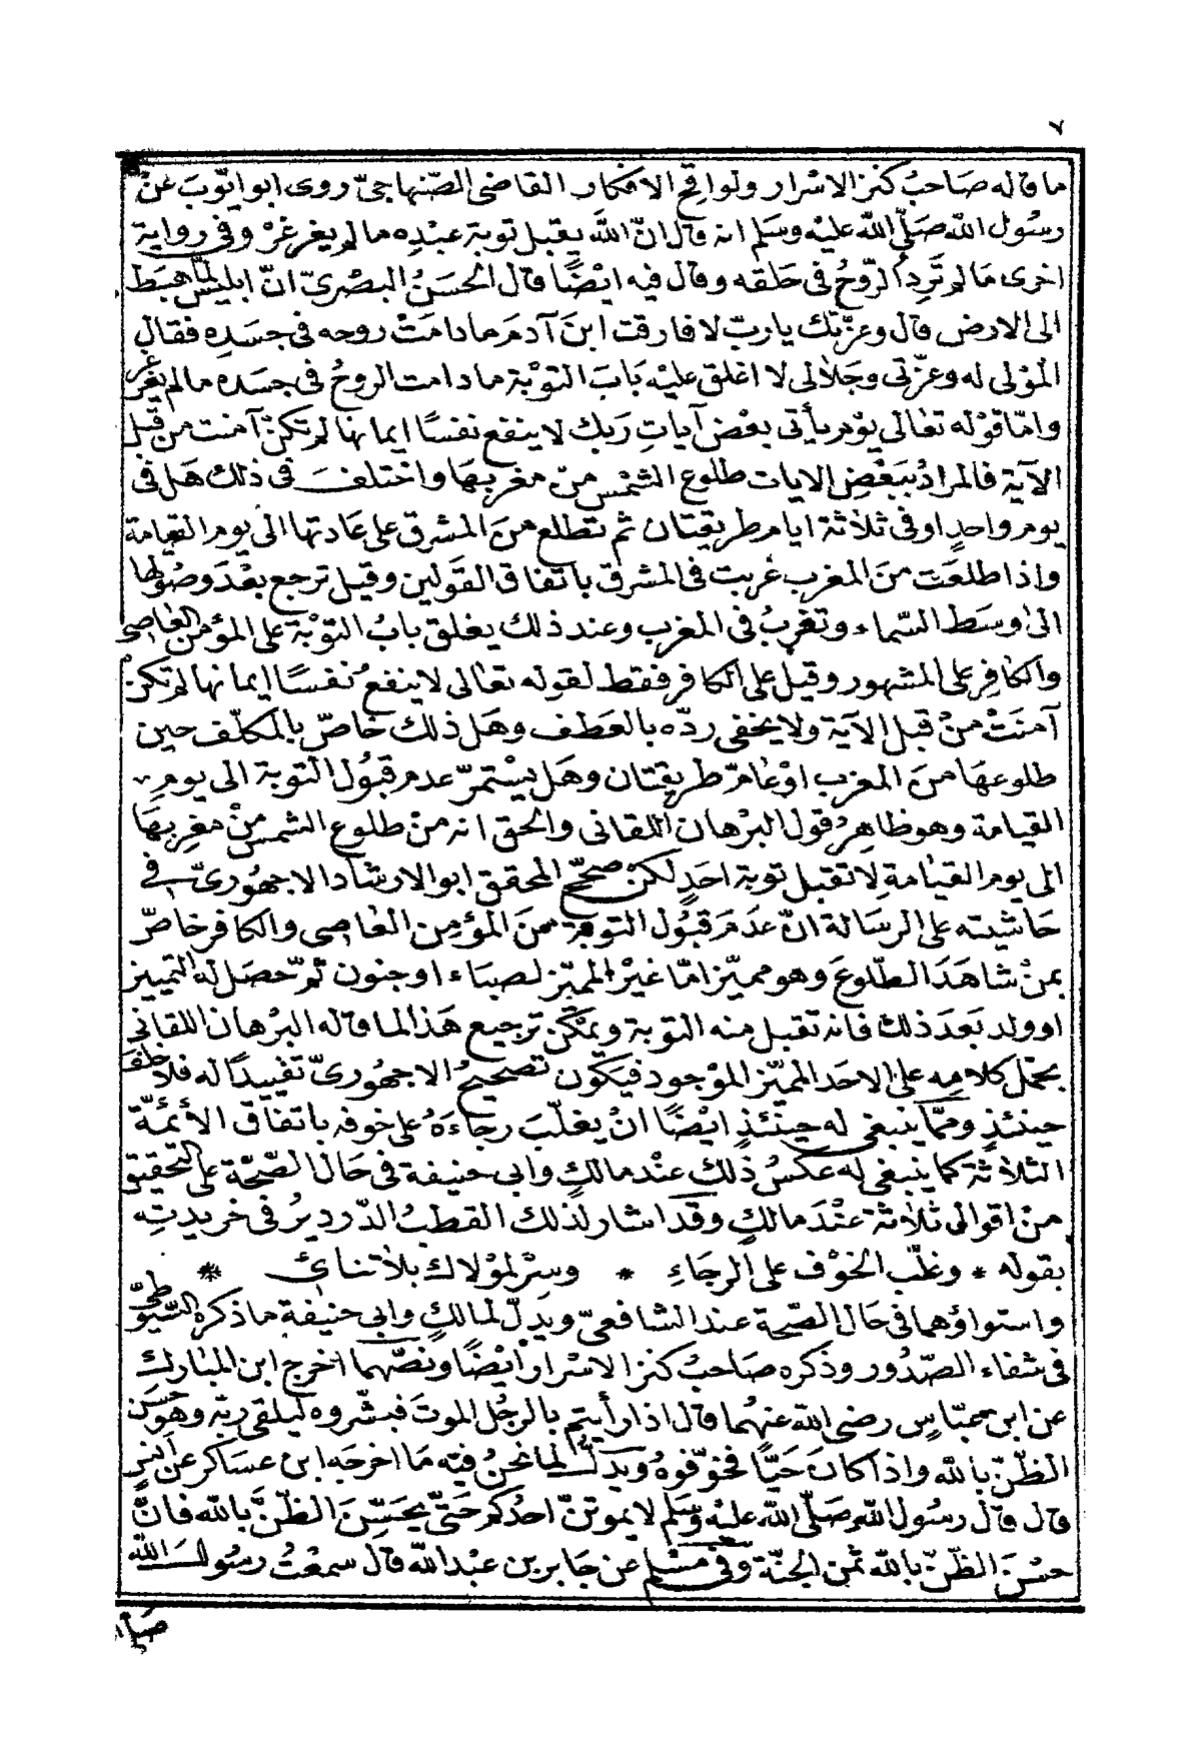 ٧
ما قاله صَاحبُ كنز الاسْرار ولواقح الافكار القاضى الصّنهاجىّ روى ابو ايّوبَ عَنْ
رسُول الله صَلّى الله عليْه وسَلم انه قال انّ اللهَ يقبل توبة عبْدِه ما لم يغرغرْ وفى رواية
اخرى مَا لم تَردِ الرّوحُ فى حَلقه وقال فيه ايْضًا قال الحَسَنُ البصْرىّ انّ ابليسَ لمّا هبَط
الى الارض قال وعزّتك يا ربّ لا فارقت ابنَ آدمَ ما دامَتْ روحه فى جسَدِه فقال
المَوْلى له وعزّتى وجَلالى لا اغلق عليْه بَابَ التوْبَة ما دامت الروحُ فى جسَده ما لم يغرغر
وامّا قوْله تعَالى يوْم يأتى بعْض آياتِ رَبك لا ينفع نفسًا ايمانها لم تكنْ آمنت من قبْل
الآية فالمرادُ ببَعْضِ الايات طلوع الشمْس منْ مغربهَا واختلفَ فى ذلك هَل فى
يوم واحدٍ او فى ثلاثة ايام طريقتان ثم تطلع منَ المشرق على عَادتها الى يوم القيامة
واذا طلعَت منَ المغرب غربت فى المشرق باتفاق القَولين وقيل ترجع بعْدَ وصُولها
الى وسَط السّماء وتغربُ فى المغرب وعند ذلك يغلق بابُ التوْبة على المؤمن العَاصى
والكافِر على المشهور وقيل على الكافر فقط لقوله تعَالى لا ينفعُ نفسًا ايمانها لم تكنْ
آمنَتْ منْ قبل الآية ولا يخفى ردّه بالعَطف وهَل ذلك خاصّ بالمكلّف حين
طلوعهَا منَ المغرب اوْ عَامّ طريقتان وهَل يسْتمرّ عدم قبُول التوبة الى يوم
القيامة وهو ظاهِرُ قول البرْهان اللقانى والحق انه منْ طلوع الشمس منْ مغربهَا
الى يوم القيامةِ لا تقبل توبة احَدٍ لكنْ صحّح المحقق ابو الارشاد الاجهُورىّ فى
حَاشيته على الرسَالة انّ عدَمَ قبُول التوبة منَ المؤمِن العَاصى والكافر خاصّ
بمنْ شاهَدَ الطلوعَ وهو مميّز امّا غيْر المميّز لصباء او جنون ثمّ حصَل له التمييز
او ولد بَعدَ ذلك فانه تقبل منه التوبة ويمكنُ ترجيع هَذا لما قاله البرْهان اللقانى
بحمْل كلامِه على الاحَد المميّز الموْجود فيكون تصحيحُ الاجهُورىّ تقييدًا له فلا خلفَ
حينئذٍ وممّا ينبغى له حينئذٍ ايْضًا انْ يغلّبَ رجاءَهُ على خوفه باتفاق الأئمّة
الثلاثة كما ينبغى له عَكسُ ذلك عنْد مالكٍ وابى حنيفة فى حَال الصّحّة على التحقيق
منْ اقوالٍ ثلاثة عنْدَ مالكٍ وقَد اشار لذلك القطبُ الدّرديرُ فى خريدتِه
بقوله * وغلّب الخوْف على الرجَاءِ * وسِرْ لموْلاك بلا تنائى *
واستواؤهما فى حَال الصّحة عند الشافعىّ ويدلّ لمالكٍ وابى حنيفة ما ذكره السّيوطىّ
فى شفاء الصّدُور وذكره صَاحبُ كنز الاسْرار أيْضًا ونصّهما اخرج ابن المبارك
عن ابن عبّاسٍ رضى الله عنهُما قال اذا رأيتم بالرجُل الموتَ فبشّروه ليلقى ربّه وهو حسَن
الظنّ بالله واذا كانَ حَيًّا فخوّفوهُ ويَدلّ لما نحنُ فيْه مَا اخرجَه ابن عسَاكر عن أنسٍ
قال قال رسُول الله صَلّى الله عليْه وسَلم لا يموتنّ احدُكم حَتّى يحَسّنَ الظنَّ بالله فانّ
حسْنَ الظنّ بالله ثمن الجنّة وفى مسْلم عن جَابر بن عبْد الله قال سمعْتُ رسُولَ الله